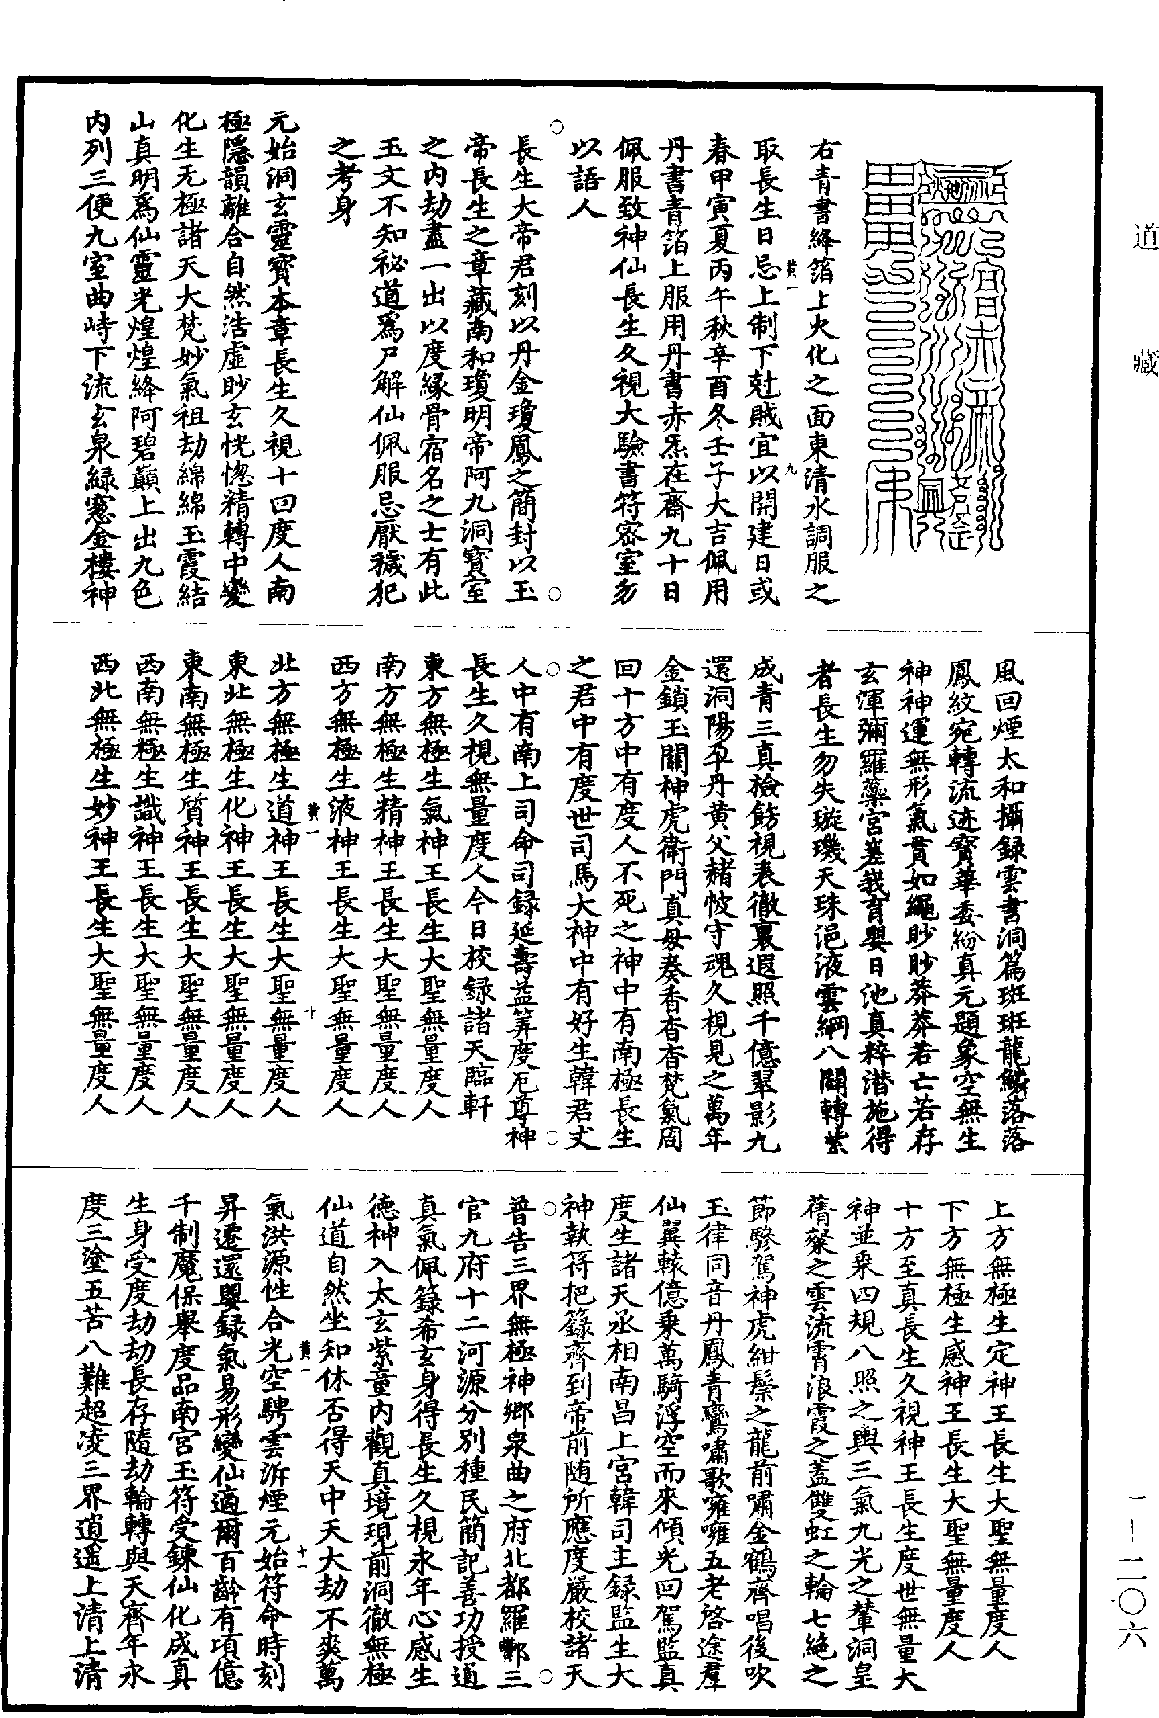 道藏
右青書絳箔上火化之面東清水調服之
取長生日忌上制下尅賊宜以開建日或
黃一
九
春甲寅夏丙午秋辛酉冬壬子大吉佩用
丹書青箔上服用丹書赤炁在齋九十日
佩服致神仙長生久視大驗書符密室勿
以語人
長生大帝君刻以丹金瓊鳳之簡封以玉
帝長生之章藏南和瓊明帝阿九洞寶室
之内劫盡一出以度緣骨宿名之士有此
玉文不知祕道爲尸解仙佩服忌厭穢犯
之考身
元始洞玄靈寶本章長生久視十回度人南
極隱韻離合自然浩虛眇玄恍惚精轉中變
化生无極諸天大梵妙氣祖劫綿綿玉霞結
山真明爲仙靈光煌煌絳阿碧巔上出九色
内列三便九室曲峙下流玄泉綠窓金樓神
風回煙太和攝録雲書洞篇斑斑龍鱗落落
鳳紋宛轉流迹寶華委紛真元題象空無生
神神運無形氣貫如繩眇眇莽莽若亡若存
玄渾彌羅蘂宮臺我育嬰日池真粹潛施得
者長生勿失璇璣天珠浥液雲綱八關轉紫
成青三真檢飭視表徹裏遐照千億翠影九
還洞陽孕丹黃父赭帔守魂久視見之萬年
金鎖玉關神虎衛門真母奏香杳杳梵氣周
回十方中有度人不死之神中有南極長生
之君中有度世司馬大神中有好生韓君丈
人中有南上司命司録延壽益筭度厄尊神
長生久視無量度人今日校録諸天臨軒
東方無極生氣神王長生大聖無量度人
南方無極生精神王長生大聖無量度人
西方無極生液神王長生大聖無量度人
黃一
十
北方無極生道神王長生大聖無量度人
東北無極生化神王長生大聖無量度人
東南無極生質神王長生大聖無量度人
西南無極生識神王長生大聖無量度人
西北無極生妙神王長生大聖無量度人
上方無極生定神王長生大聖無量度人
下方無極生感神王長生大聖無量度人
十方至真長生久視神王長生度世無量大
神並乗四規八照之輿三氣九光之輦洞皇
蒨粲之雲流霄浪霞之蓋雙虹之輪七絶之
節驂駕神虎紺髹之龍前嘯金鶴齊唱後吹
玉律同音丹鳳青鸞嘯歌嗈嗈五老啓途羣
仙翼轅億乗萬騎浮空而來傾光回駕監真
度生諸天丞相南昌上宮韓司主録監生大
神執符把籙齊到帝前随所應度嚴校諸天
普告三界無極神鄉泉曲之府北都羅酆三
官九府十二河源分別種民簡記善功授道
真氣佩籙希玄身得長生久視永年心感生
德神入太玄紫童内觀真境現前洞徹無極
仙道自然坐知休否得天中天大劫不爽萬
黃一
十一
氣洪源性合光空騁雲泝煙元始符命時刻
昇遷還嬰録氣易形變仙適爾百齡有項億
千制魔保舉度品南宮玉符受鍊仙化成真
生身受度劫劫長存隨劫輪轉與天齊年永
度三塗五苦八難超凌三界逍遥上清上清
一—二〇六